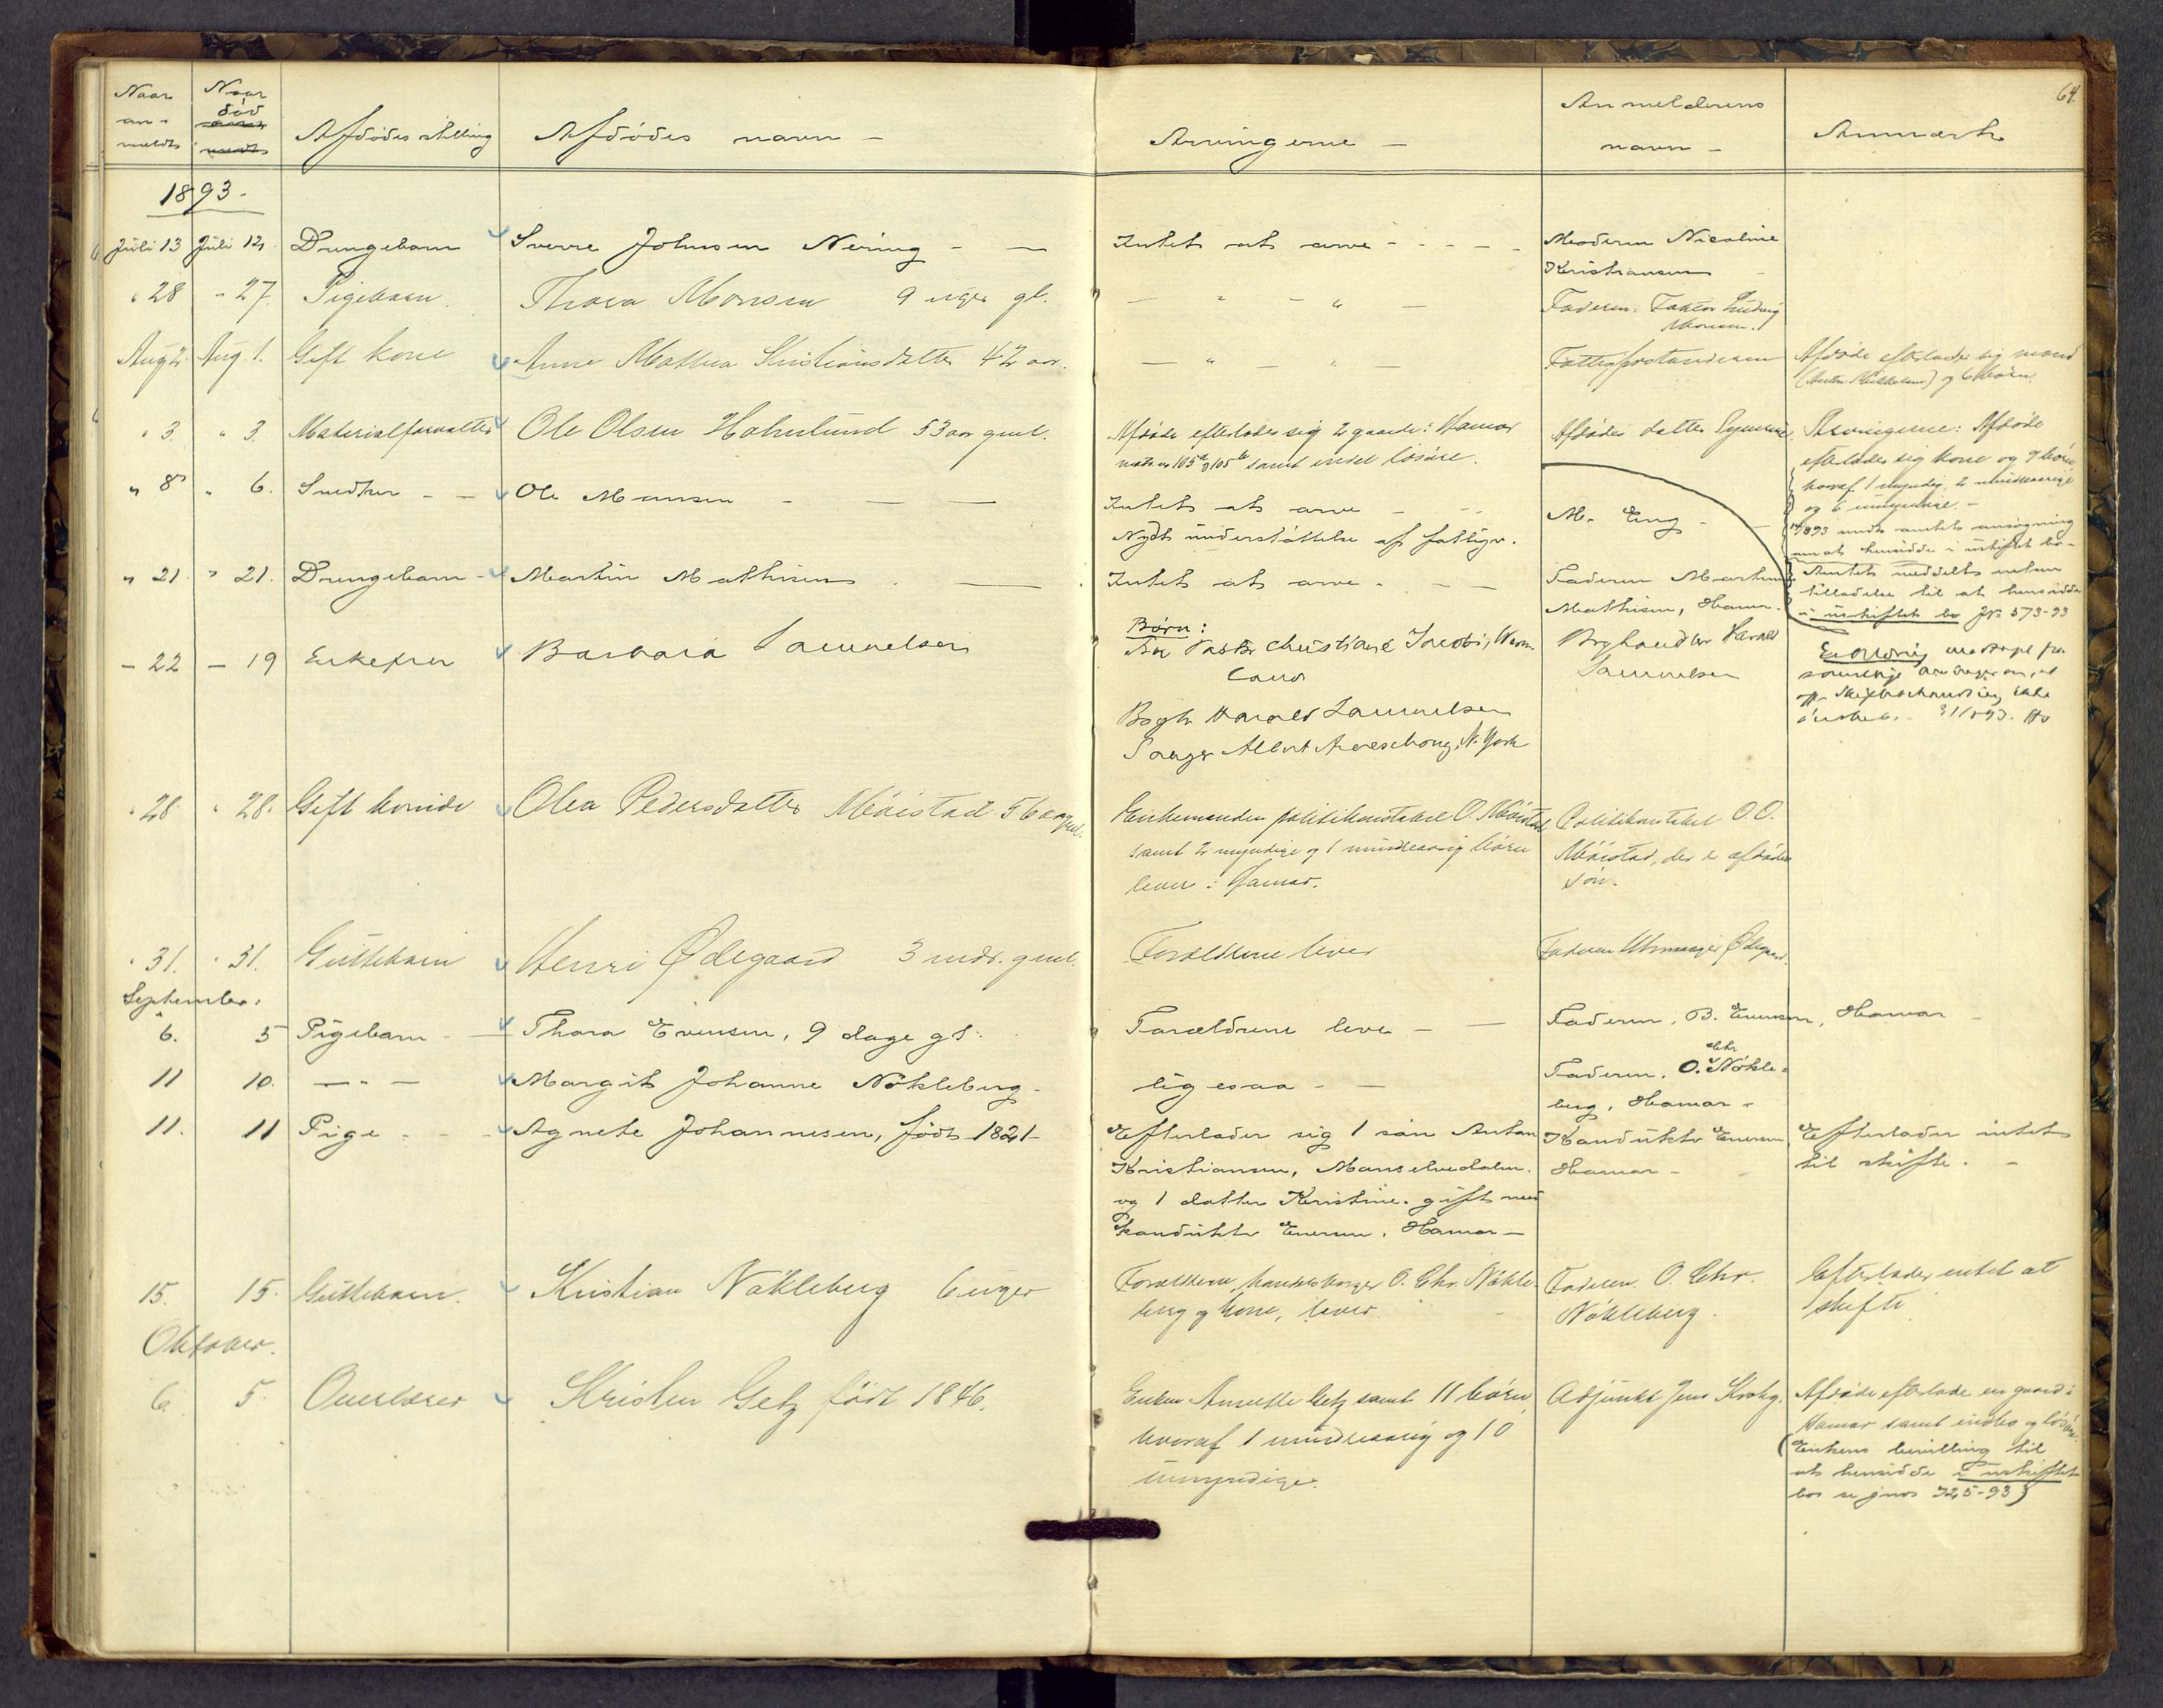 64.
Naar an-meldt
Naar død
Afdødes stilling
Afdødes navn -
Arvingerne -
Anmelderens navn -
Anmærk.
1893.
Juli 13 Juli 12 Drengebarn Sverre Johnsen Nering - - Intet at arve - - - - Moderen Nicoline
Kristiansen
" 28 " 27. Pigebarn Thora Monsen 9 uger gl. — " — " — Faderen: Faktor Ludvig
Monsen.
Aug 2. Aug. 1. Gift kone Anne Mathea Kristiansdatter 42 aar. — " — " — Fattigforstanderen Afdøde efterlader sig mand
og 6 børn.
" 3. " 3. Materialforvalter Ole Olsen Holmlund 53 aar gml. Afdøde efterlader sig 2 gaarde i Hamar Afdødes datter Arvingerne: Afdøde
matr no 105a og 105b samt endel løsøre. efterlader sig kone og 9 børn,
hvoraf 1 myndig, 2 mindreaarige
og 6 umyndige. -
" 8 " 6. Snedker - - Ole Hansen - — — Intet at arve - - M. Eng -
Nydt understøttelse af fattigv.
1893 ansøgning
om at hensidde i uskiftet bo -
Amtet meddelt enken
tilladelse til at hensidde
i uskiftet bo JN. 573-93
" 21. " 21. Drengebarn - Martin Mathisen — Intet at arve - - - Faderen Martin
Mathisen, Hamar.
- 22 - 19 Enkefru Barbara Samuelsen Børn: Boghandler Harald
Samuelsen
Christiane Jacobi,
Bogh Harald Samuelsen
Albert N. York
" 28. " 28. Gift kvinde Olea Pedersdatter Møistad 56 aar gml. Enkemanden politikonstabel O. Møistad Politikonstabel O. O.
samt 2 myndige og 1 mindreaarig børn Møistad, der er afdødes
lever i Hamar. søn.
" 31. " 31. Guttebarn Henri Ødegaard 3 mdr. gml. Forældrene lever Faderen Uhrmager Ødegaard.
September:
6. 5 Pigebarn - Thora Evensen, 9 dage gl. Forældrene leve - - Faderen, B. Evensen, Hamar -
11 10. — " — Margit Johanne Nøkleberg - ligesaa - - Faderen, O. Chr Nøkle-
berg, Hamar -
11. 11 Pige - - - Agnete Johannesen, født 1821 - Efterlader sig 1 søn Anton Konduktør Enersen Efterlader intet
Kristiansen, Maalselvedalen. Hamar - til skifte. -
og 1 datter Kristine, gift med
Konduktør Enersen, Hamar -
15. 15. Guttebarn. Kristian Nøkleberg 6 uger Forældrene, handelsborger O. Chr. Nøkle- Faderen O. Chr. Efterlader intet at
berg og kone, lever. Nøkleberg. skifte
Oktober.
6. 5. Overlærer Kristen Getz født 1846. Enken Annette Getz samt 11 børn, Adjunkt Jens Krohg. Afdøde efterlade en gaard i
hvoraf 1 mindreaarig og 10 Hamar samt indbo og løsøre.
umyndige. (Enkens bevilling til
at hensidde i uskiftet
bo se jnos 725-93)